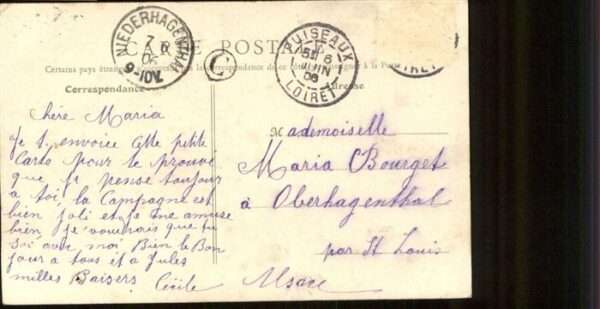 CARTE POSTALE
Certains pays étrangers
la correspondance de ce côté
Correspondance
Adresse
NIEDERHAGENTHAL
7 6
06
9-10V.
C
PUISEAUX
5E 6
JUIN
06
LOIRET
LOIRET
Chère Maria
Je t'envoice cette petite
Carte pour te prouvé
que je pense toujour
a toi, la Campagne est
bien joli et je me amuse
bien je voudrais que tu
soi avec moi Bien le Bon
jour a tous et a Jules
milles Baisers Cécile
Mademoiselle
Maria Bourget
à Oberhagenthal
par St Louis
Alsace